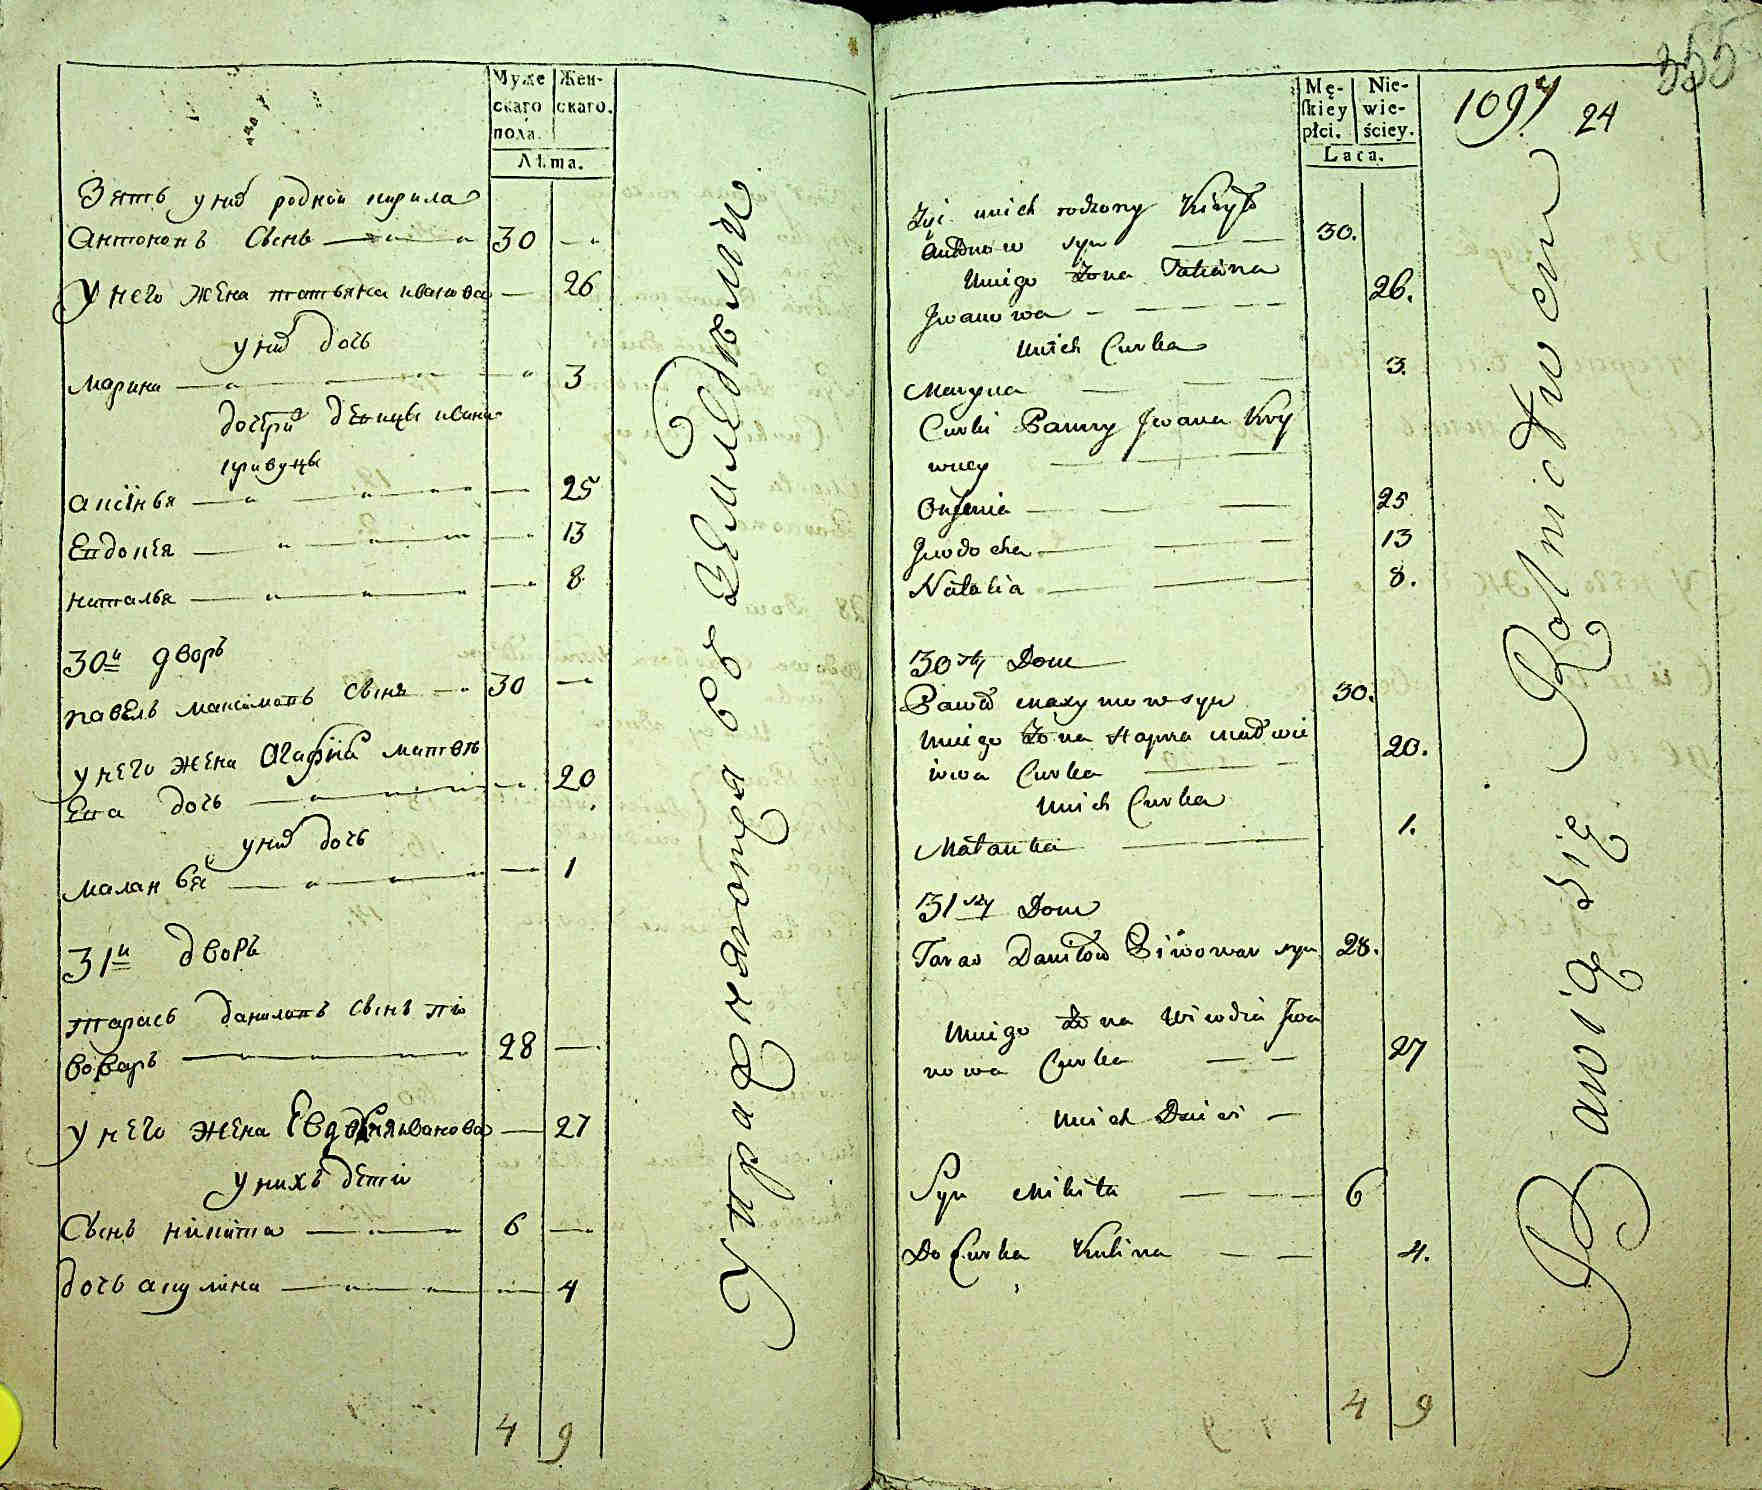 Муже
скаго
пола.
Жен-
скаго.
Лѣта.
Зять у нихъ родной кирила
Антоновъ Сынъ 30
У него жена татьяна иванова 26
у нихъ дочь
марина 3
дочери девицы ивана
кривуцы
аксінья 25
Евдокія 13
наталья 8
30й дворъ
павелъ максимовъ сынъ 30
у него жена Агафия матвѣ
ева дочь 20
у нихъ дочь
маланья 1
31й дворъ
тарасъ даниловъ сынъ пи
воваръ 28
у него жена Евдокия иванова 27
у нихъ дети
Сынъ никита 6
дочь акулина 4
4 9
Упражняются въ Земледѣлии
355
1097 24
Mę-
skiey
płci.
Nie-
wie-
ściey.
Lata.
Zyć unich rodzony Kiryło
Antonow syn 30.
Uniego Żona Tatiana
Jwanowa 26.
Unich Curka
Maryna 3.
Curki Panny Jwana Kry
wucy
Onsenia 25
Jwdocha 13
Natalia 8.
30sty Dom
Paweł Maxymow syn 30.
Uniego Żona Hapwa Matwie
iowa Curka 20.
Unich Curka
Małanka 1.
31szy Dom
Taras Daniłow Piwowar syn 28.
Uniego Żona Wiwdia Jwa
nowa Curka 27
Unich Dzieci
Syn Mikita 6
Do Curka Kulina 4.
4 9
Bawią się Rolnictwem